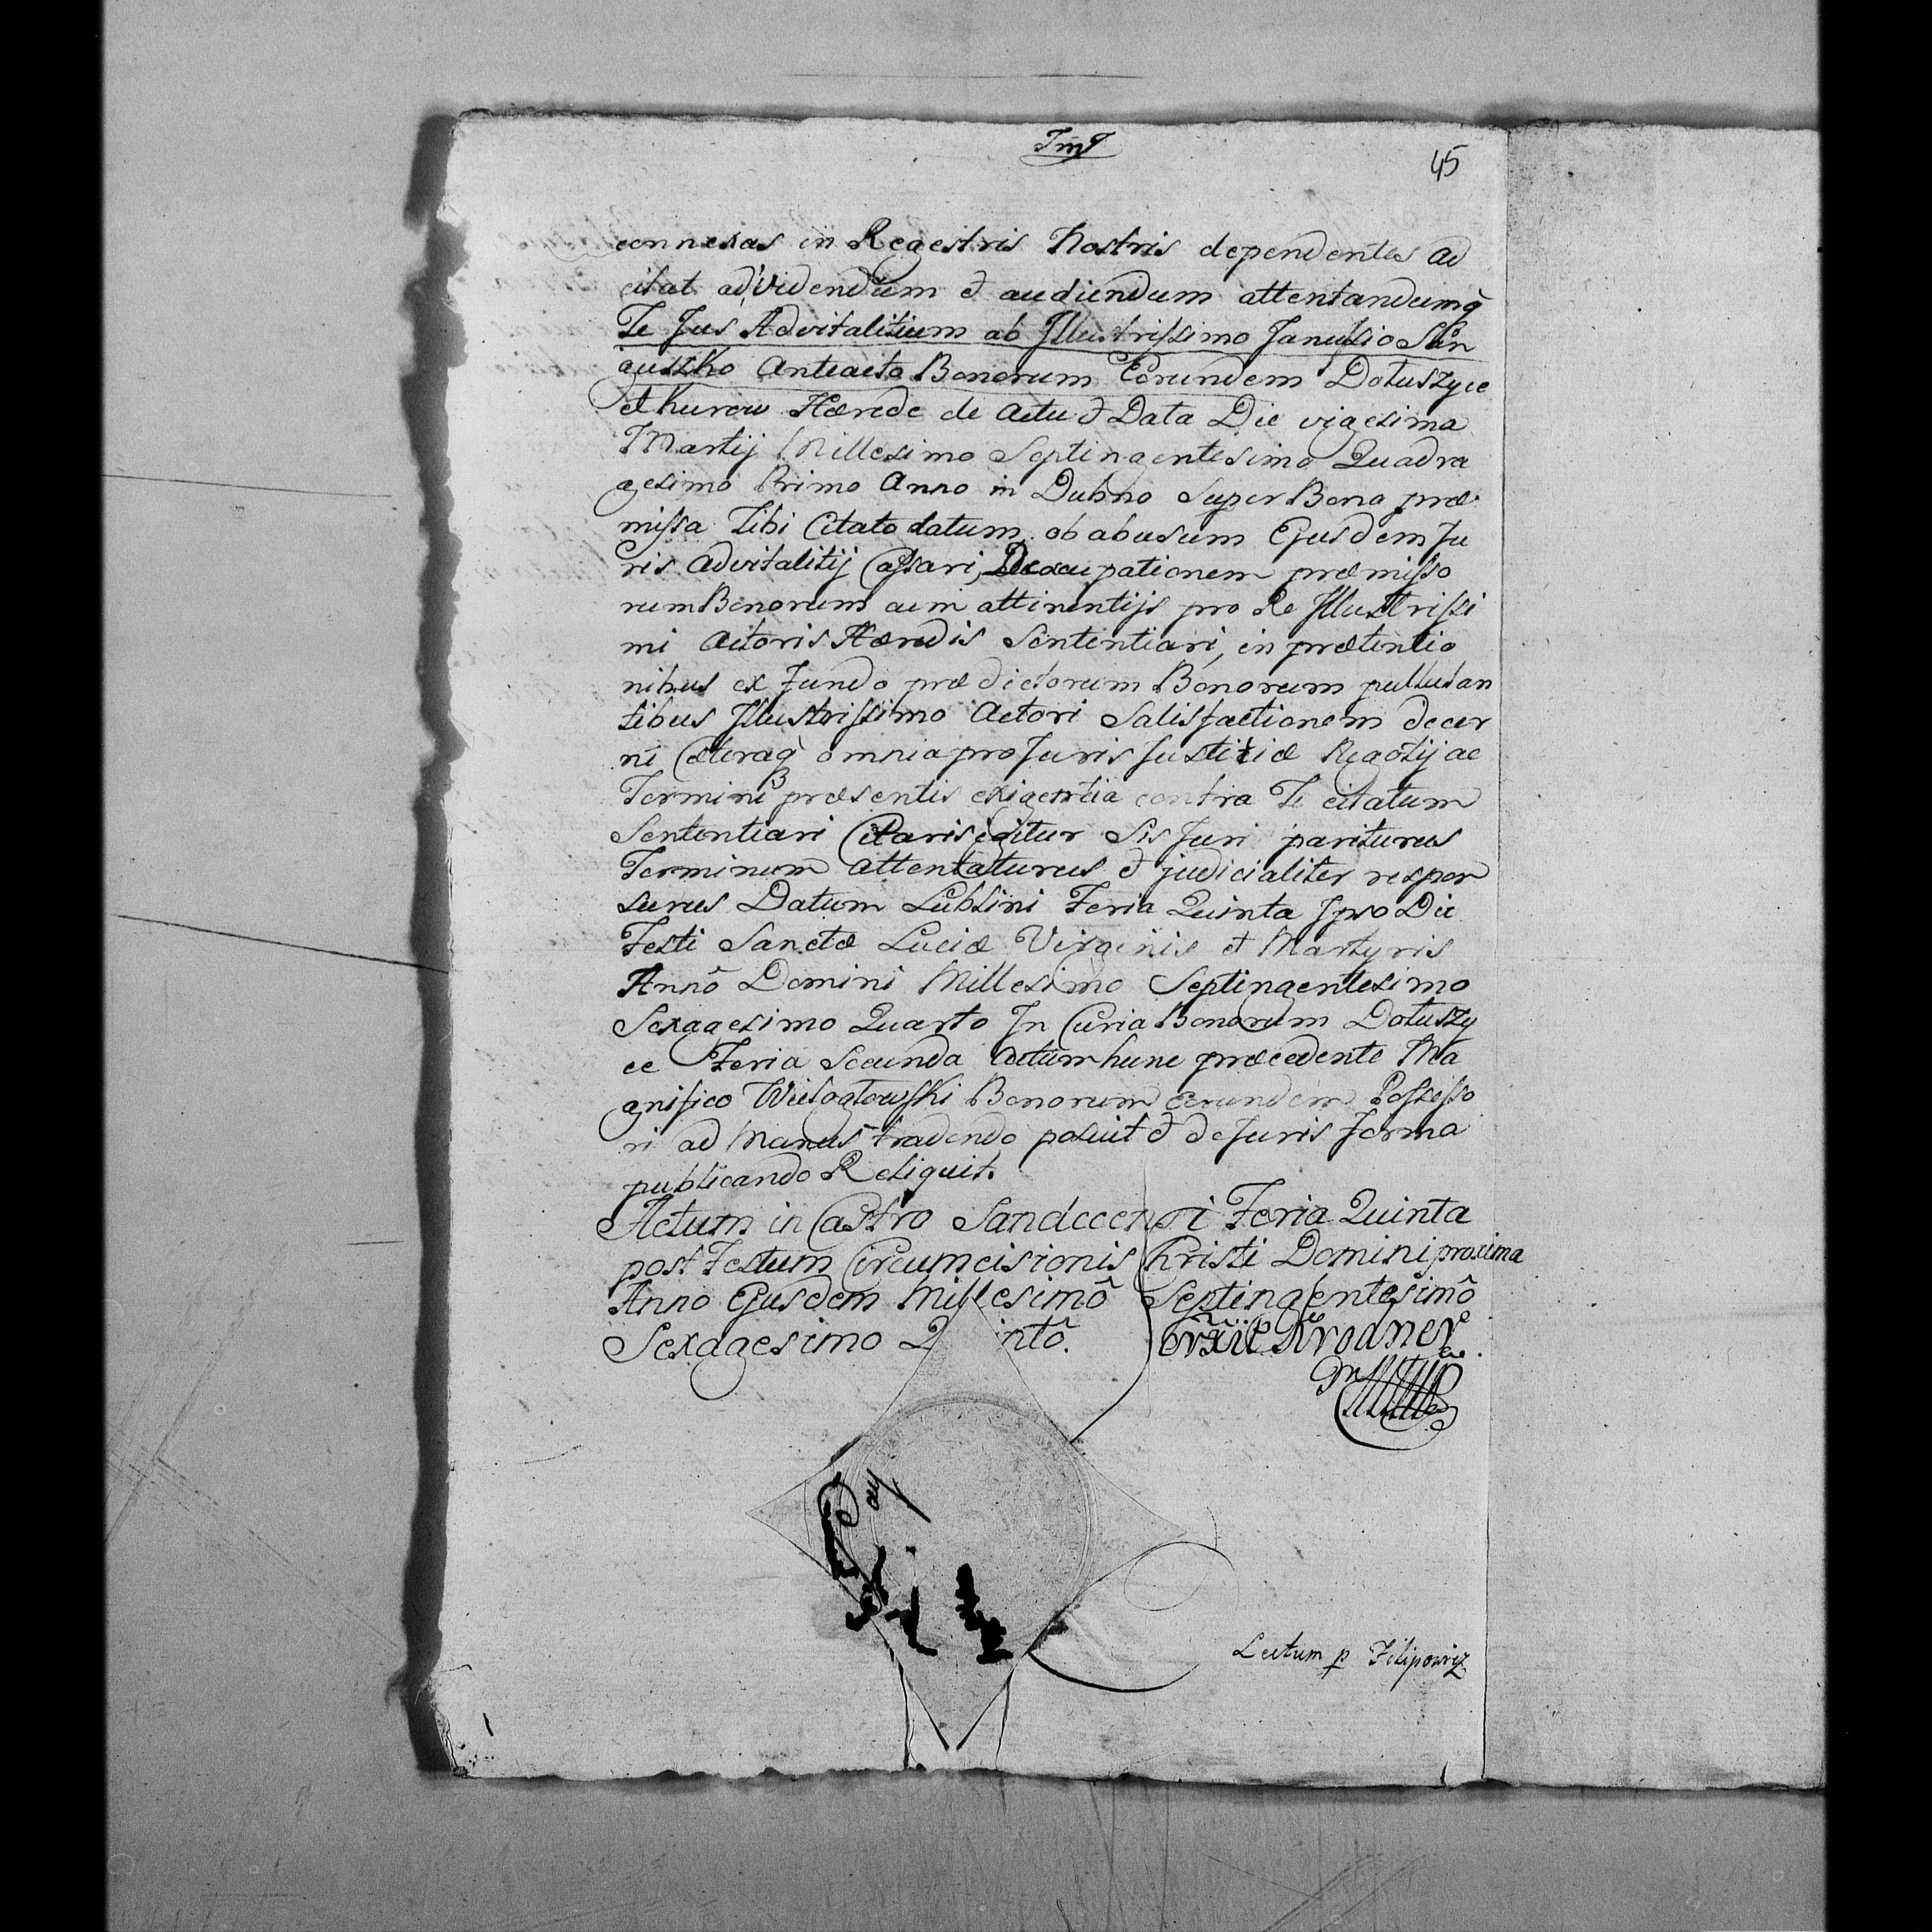 ImJ
45
connexas in Regestris Nostris dependentes ad
citat ad videndum et audiendum attentandumq̃
Te Jus Advitalitium ab Illustrissimo Janussio San
guszko Anteacto Bonorum Eorundem Dołuszyce
et Kurow Hærede de Actu et Data Die vigesima
Martij Millesimo Septingentesimo Quadra
gesimo Primo Anno in Dubno Super Bona præ
missa Tibi Citato datum ob abusum Ejusdem Ju
ris Advitalitij Cassari, Deoccupationem præmisso
rum Bonorum cum attinentijs pro Re Illustrissi
mi Actoris Hæredis Sententiari, in prætentio
nibus ex fundo prædictorum Bonorum pullulan
tibus Illustrissimo Actori Satisfactionem decer
ni Cæteraq̃ omnia pro Juris Justitiæ Negotij ac
Termini præsentis exigentia contra Te citatum
Sententiari Citaris igitur Sis Juri pariturus
Terminum attentaturus et judicialiter respon
surus Datum Lublini Feria Quinta Ipso Die
Festi Sanctæ Luciæ Virginis et Martyris
Annô Domini Millesimo Septingentesimo
Sexagesimo Quarto In Curia Bonorum Dołuszy
ce Feria Secunda Actum hunc præcedente Ma
gnifico Wielogłowski Bonorum Eorundem Possesso
ri ad Manus tradendo posuit et de Juris forma
publicando Reliquit.
Actum in Castro Sandecensi Feria Quinta
post Festum Circumcisionis Christi Domini proxima
Anno Ejusdem Millesimô Septingentesimô
Sexagesimo Q intô.
Lectum p Filipowicz